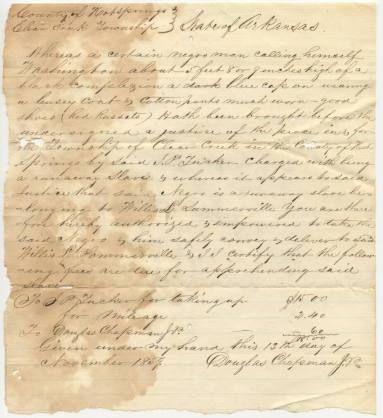 County of Hotsprings }
Clear Creek Township } State of Arkansas
Whereas a certain negro man calling himself
Washington about 5 feet 8 or 9 inches high of a
black complexion a dark blue cap on waring
a linsey Coat & Cotton pants much worn good
shoes (Red Russets) Hath been brought before the
undersigned a justice of the peace in & for
the Township of Clear Creek in the County of Hot
Springs by Said J P Tucker Charged with being
a runaway Slave & whereas it appears to said
Justice that said Negro is a runaway slave be
longing to Willis S. Sommerville You are there
fore hereby authorized & empowered to take the
said Negro & him safely convey & deliver to said
Willis S. Sommerville & I certify that the follow
ing fees are due for apprehending said
slave
To J P Tucker for taking up $15.00
for mileage 2.40
To Douglas Chapman J.P. 60
18.00
Given under my hand this 13th day of
November 1857 Douglas Chapman J.P.